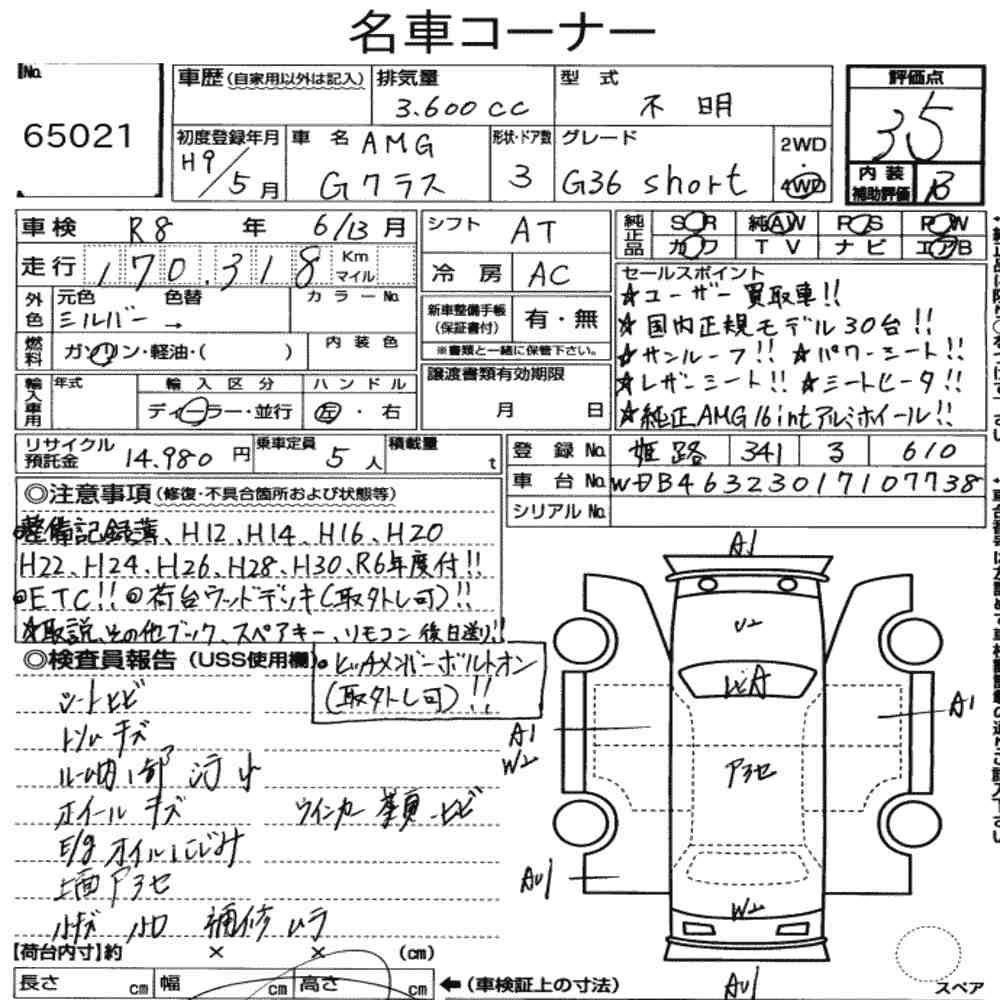 名車コーナー
No. 65021
車歴 (自家用以外は記入)
排気量 3.600 CC
型式 不明
評価点 3.5
初度登録年月 H9/5月
車名 AMG Gクラス
形状・ドア数 3
グレード G36 short
2WD・4WD
内装補助評価 B
車検 R8年 6/13月
シフト AT
純正品 SR 純AW PS PW
カワ TV ナビ エアB
走行 170.318 Km マイル
冷房 AC
外色 元色 シルバー → 色替 カラーNo.
新車整備手帳(保証書付) 有・無
※書類と一緒に保管下さい。
燃料 ガソリン・軽油・( ) 内装色
セールスポイント
☆ユーザー買取車!!
☆国内正規モデル30台!!
☆サンルーフ!! ☆パワーシート!!
☆レザーシート!! ☆シートヒータ!!
☆純正AMG16intアルミホイール!!
輸入車用 年式 輸入区分 ハンドル
ディーラー・並行 左・右
譲渡書類有効期限
月 日
リサイクル預託金 14.980円
乗車定員 5人
積載量 t
登録No. 姫路 341 る 610
車台No. WDB46323017107738
シリアルNo.
◎注意事項(修復・不具合箇所および状態等)
◎整備記録簿、H12、H14、H16、H20
H22、H24、H26、H28、H30、R6年度付!!
◎ETC!! ◎荷台ウッドデッキ(取外し可)!!
☆取説、その他ブック、スペアキー、リモコン後日送り!!
◎検査員報告(USS使用欄)
ヒッチメンバーボルトオン
(取外し可)!!
シートヒビ
トリムキズ
ルーム内部汚れ
ホイールキズ
ウインカー 左右 ヒビ
E/gオイルにじみ
上面アラセ
小キズ 小凹 補修ムラ
A1
U2
ヒビA
A1
W2
A1
アラセ
AU1
W2
AU1
スペア
【荷台内寸】約 × × (cm)
長さ cm 幅 cm 高さ cm
←(車検証上の寸法)